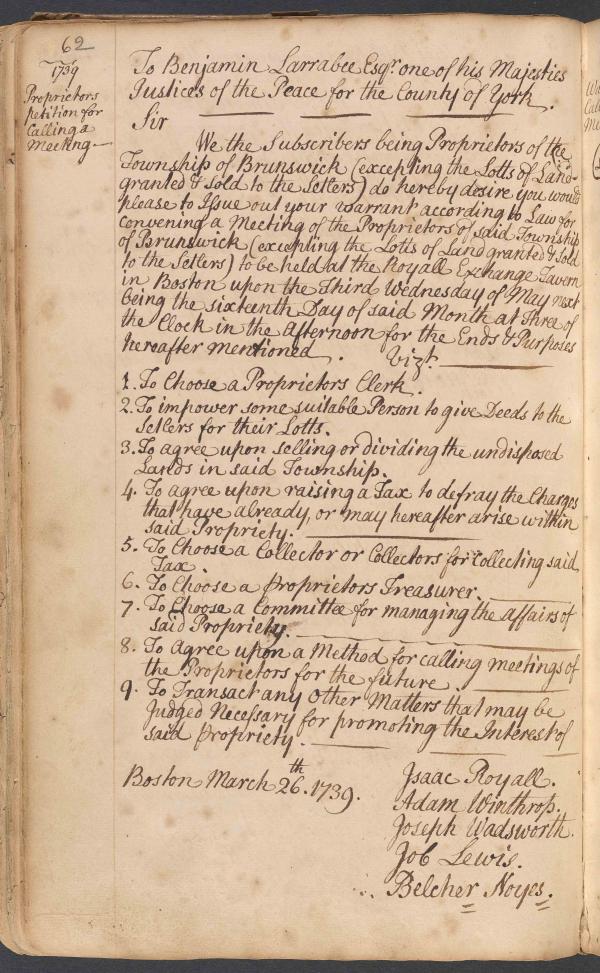 62
1739
Proprietors
petition for
Calling a
Meeting
To Benjamin Larrabee Esqr. one of his Majesties
Justices of the Peace for the County of York.
Sir
We the Subscribers being Proprietors of the
Township of Brunswick (excepting the Lotts of Land
granted & sold to the Setlers) do hereby desire you would
please to Issue out your warrant according to Law for
convening a Meeting of the Proprietors of said Township
of Brunswick (excepting the Lotts of Land granted & sold
to the Setlers) to be held at the Royall Exchange Tavern
in Boston upon the Third Wednesday of May next
being the sixteenth Day of said Month at Three of
the Clock in the afternoon for the Ends & Purposes
hereafter mentioned. Vizt.
1. To Choose a Proprietors Clerk.
2. To impower some suitable Person to give Deeds to the
Setlers for their Lotts.
3. To agree upon selling or dividing the undisposed
Lands in said Township.
4. To agree upon raising a Tax to defray the Charges
that have already, or may hereafter arise within
said Propriety.
5. To Choose a Collector or Collectors for Collecting said
Tax.
6. To Choose a Proprietors Treasurer.
7. To Choose a Committee for managing the affairs of
said Propriety.
8. To Agree upon a Method for calling meetings of
the Proprietors for the future
9. To Transact any Other Matters that may be
Judged Necessary for promoting the Interest of
said Propriety.
Boston March 26th. 1739.
Isaac Royall.
Adam Winthrop.
Joseph Wadsworth.
Job Lewis.
Belcher Noyes.